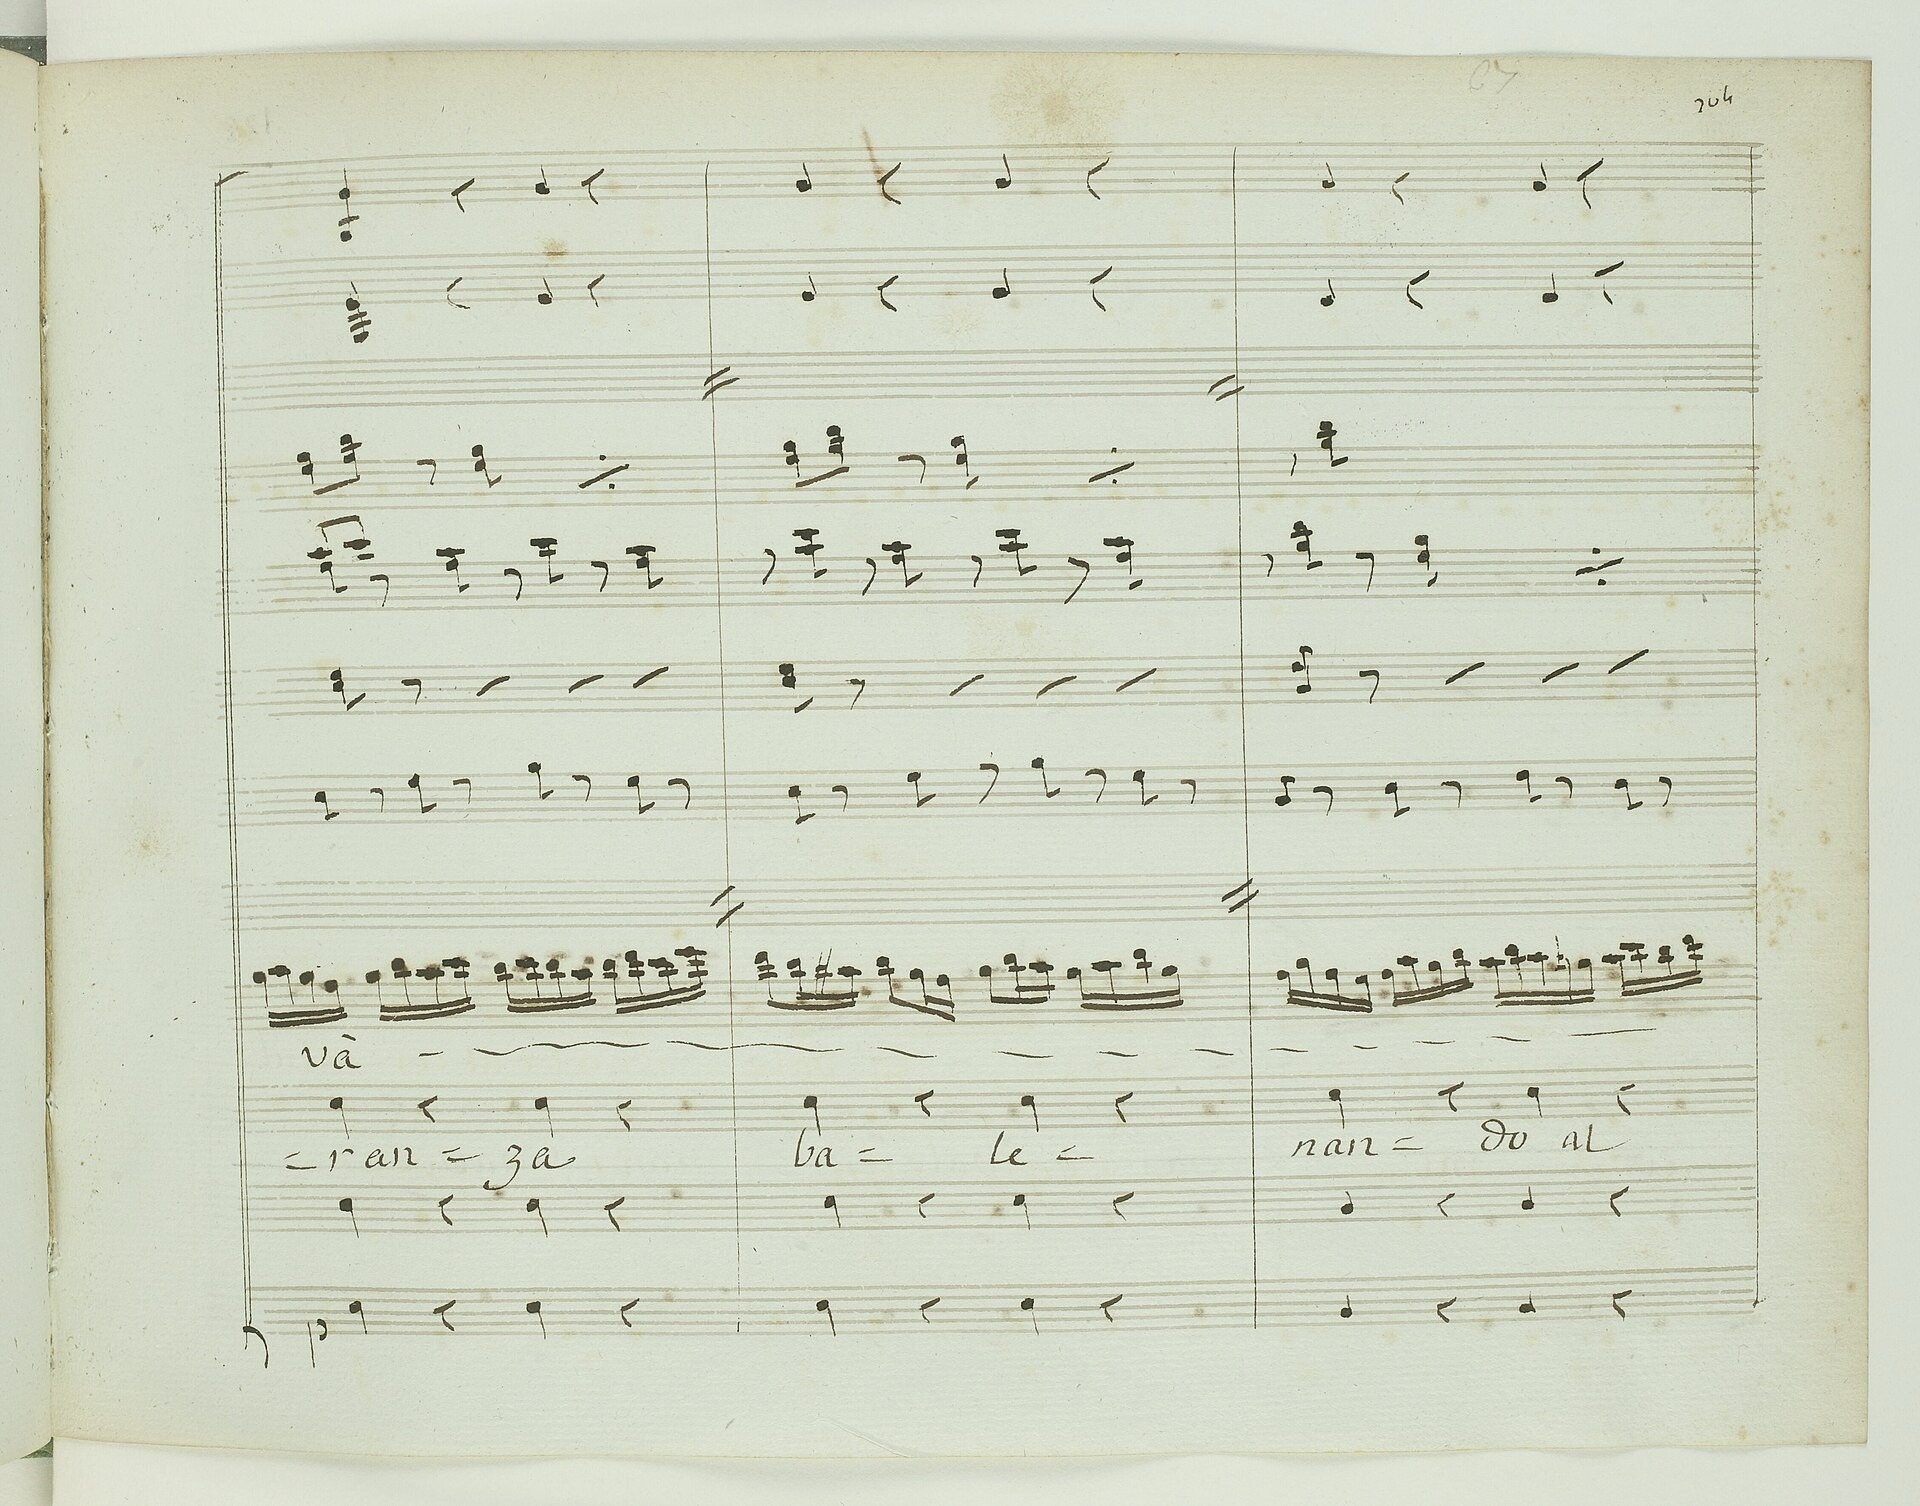 67
204
và
= ran = za ba = le = nan = do al
p